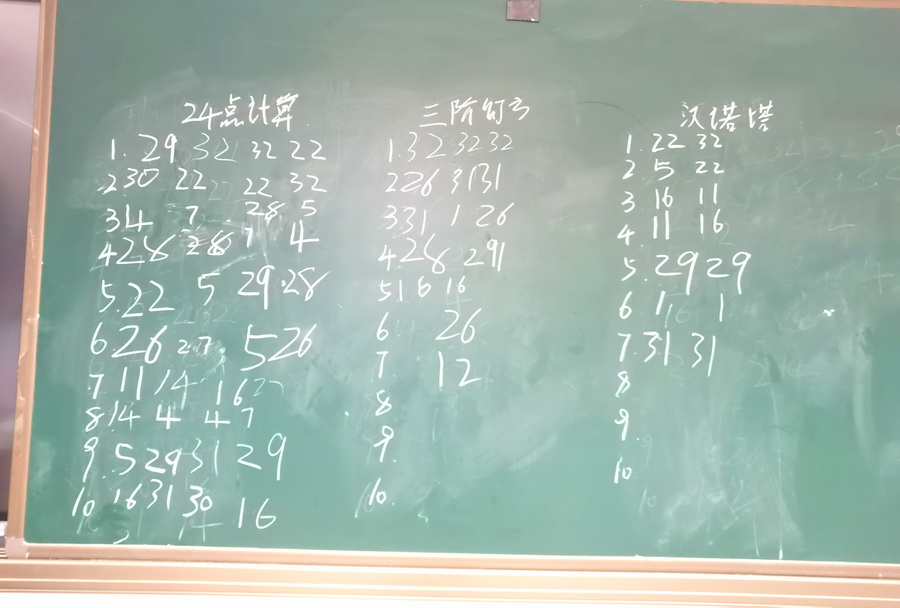 24点计算
1. 29 32 32 22
2 30 22 22 32
3 14 7 28 5
4 28 28 7 4
5. 22 5 29 28
6. 26 27 5 26
7 11 14 16 22
8 14 4 4 7
9. 5 29 31 29
10 16 31 30 16
三阶
1. 32 32 32
2 26 31 31
3 31 1 26
4. 28 29 1
5 1 5 16
6. 26
7. 12
8
9.
10.
汉塔塔
1. 22 32
2 5 22
3 16 11
4. 11 16
5. 29 29
6. 1 1
7. 31 31
8.
9.
10